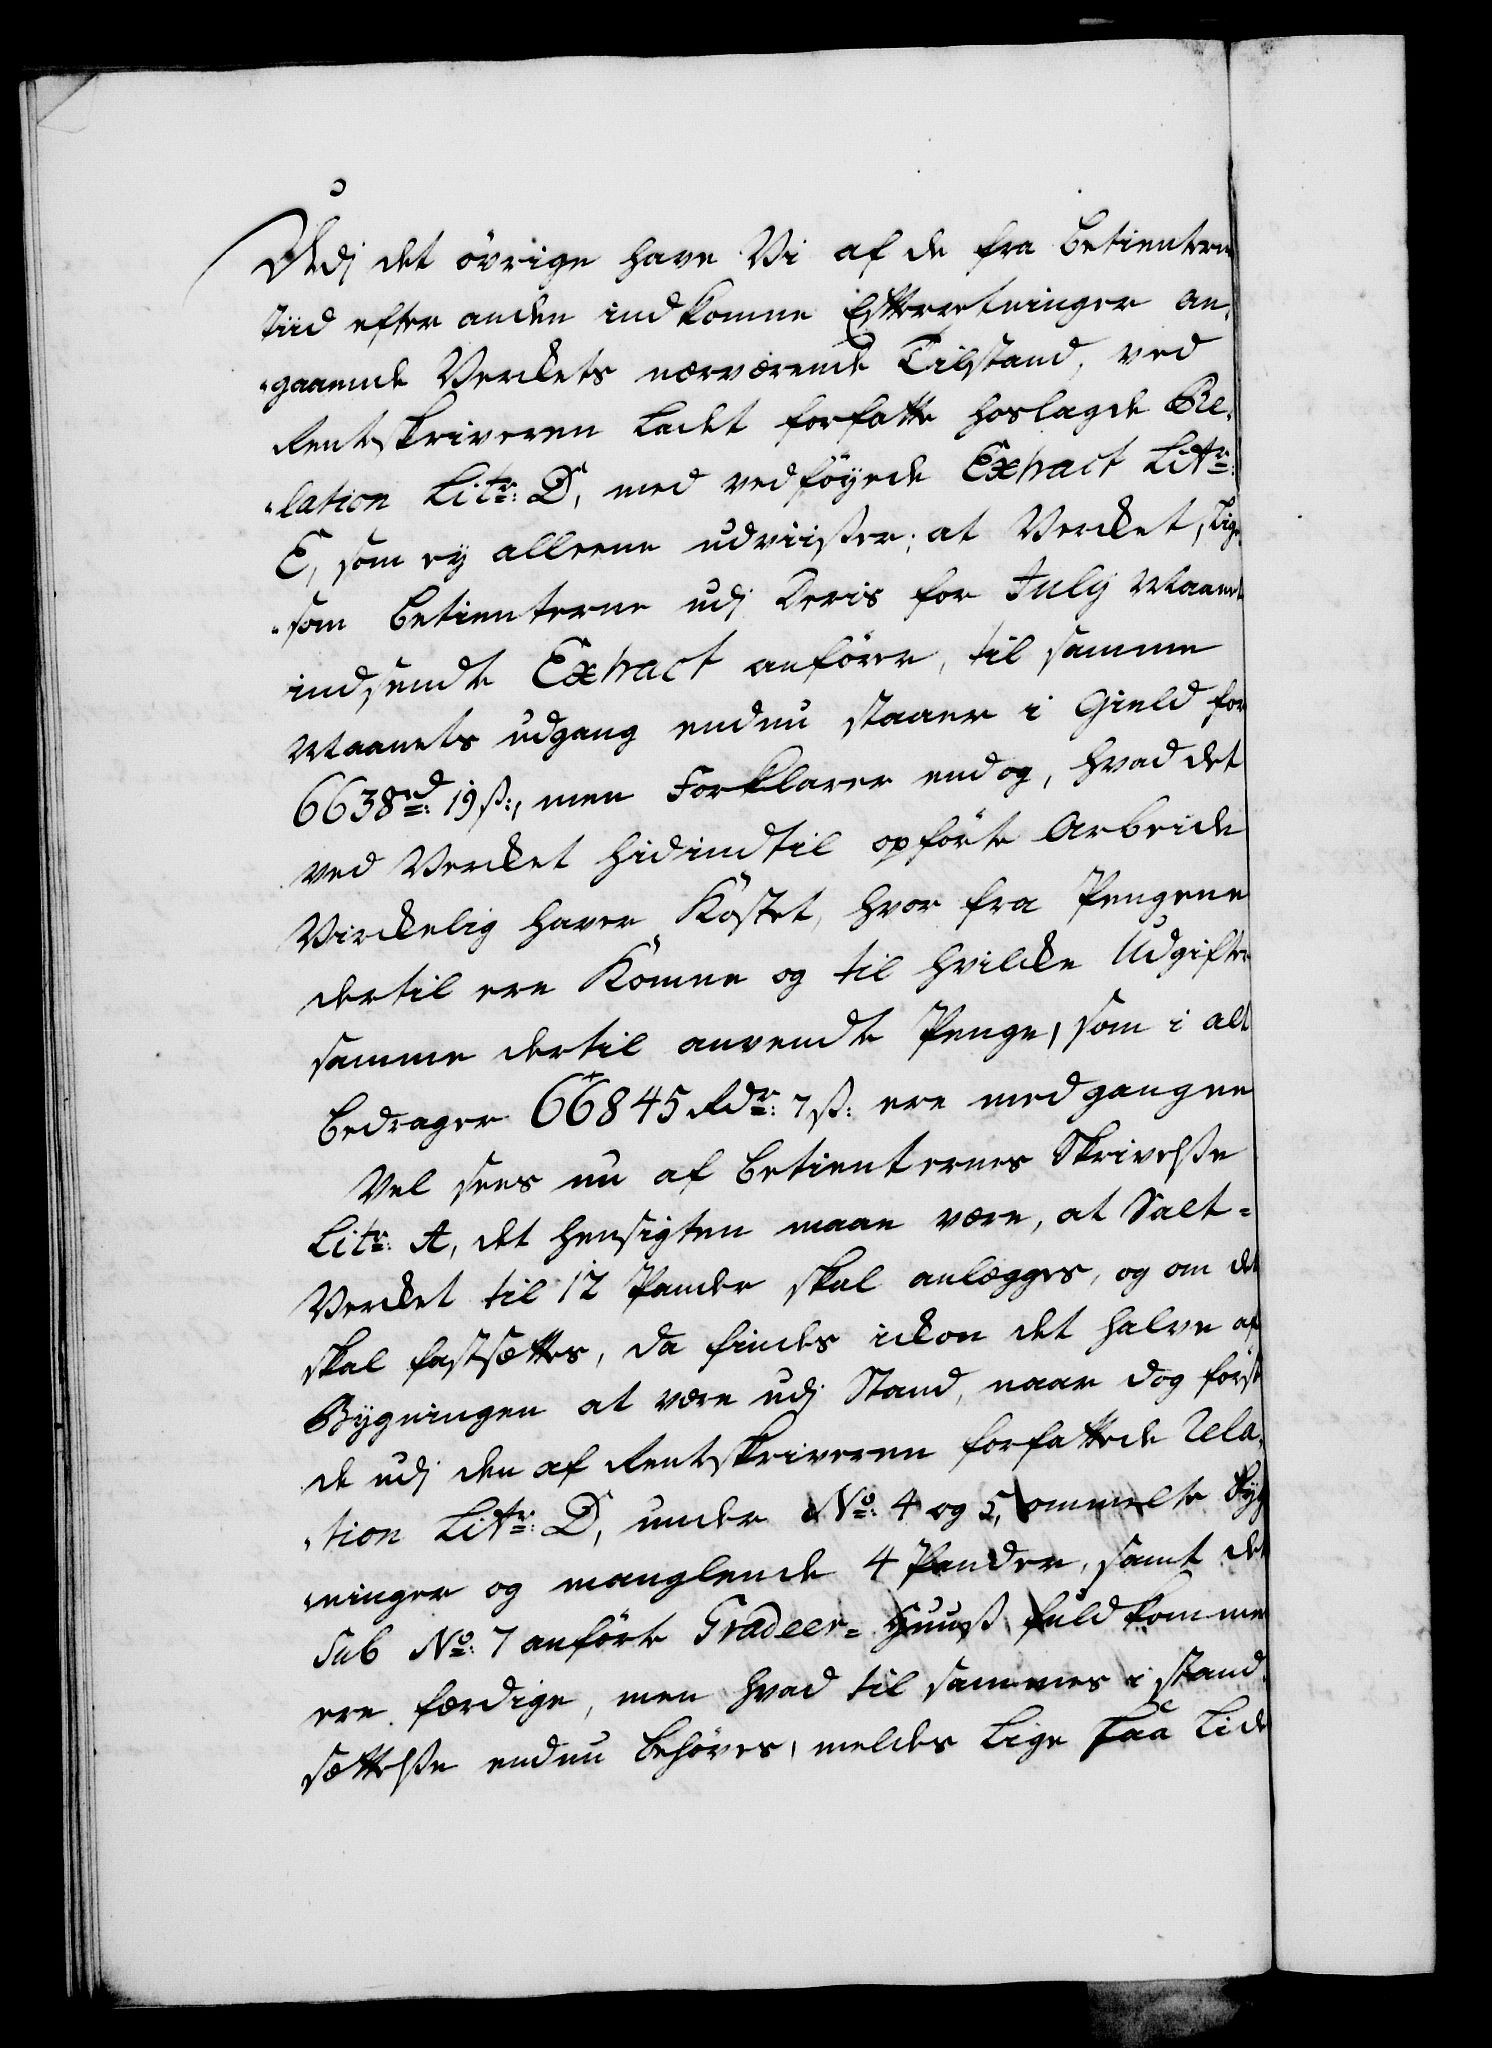 Udj det övrige have Vi af de fra Betienterne
Tiid efter anden indkomne Efterretninger an¬
¬gaaende Verckets nærværende Tilstand, ved
Rentskriveren Ladet forfatte hoslagde Re¬
¬lation Litr: D, med vedföyede Extract Litr:
E, som ey alleene udviißer; at Vercket, lige¬
¬som Betienterne udj Deris for July Maaned
indsendte Extract anförer, til samme
Maanets udgang endnu staaer i Gield for
6638rd: 19ß:, men Forklarer endog, hvad det
ved Vercket hidindtil opförte Arbeide
Virckelig haver Kostet, hvor fra Pengene
dertil ere Komne og til hvilcke Udgifter
samme dertil anvendte Penge, som i alt
bedrager 66845 Rdr: 7ß: ere medgangne
Vel sees nu af Betienternes Skrivelße
Litr: A, det hensigten maae være, at Salt=
Vercket til 12 Pander skal anlægges, og om det
skal fastsættes, da findes ickon det halve af
Bygningen at være udj Stand, naar dog först
de udj den af Rentskriveren forfattede Rela¬
¬tion Litr: D, under No: 4 og 5, ommelte Byg¬
¬ninger og manglende 4 Pander, samt det
sub No: 7 anförte Gradeer= Huuß fuldkomme
ere færdige, men hvad til sammes i stand¬
sættelße endnu behöves, meldes lige saa lidet